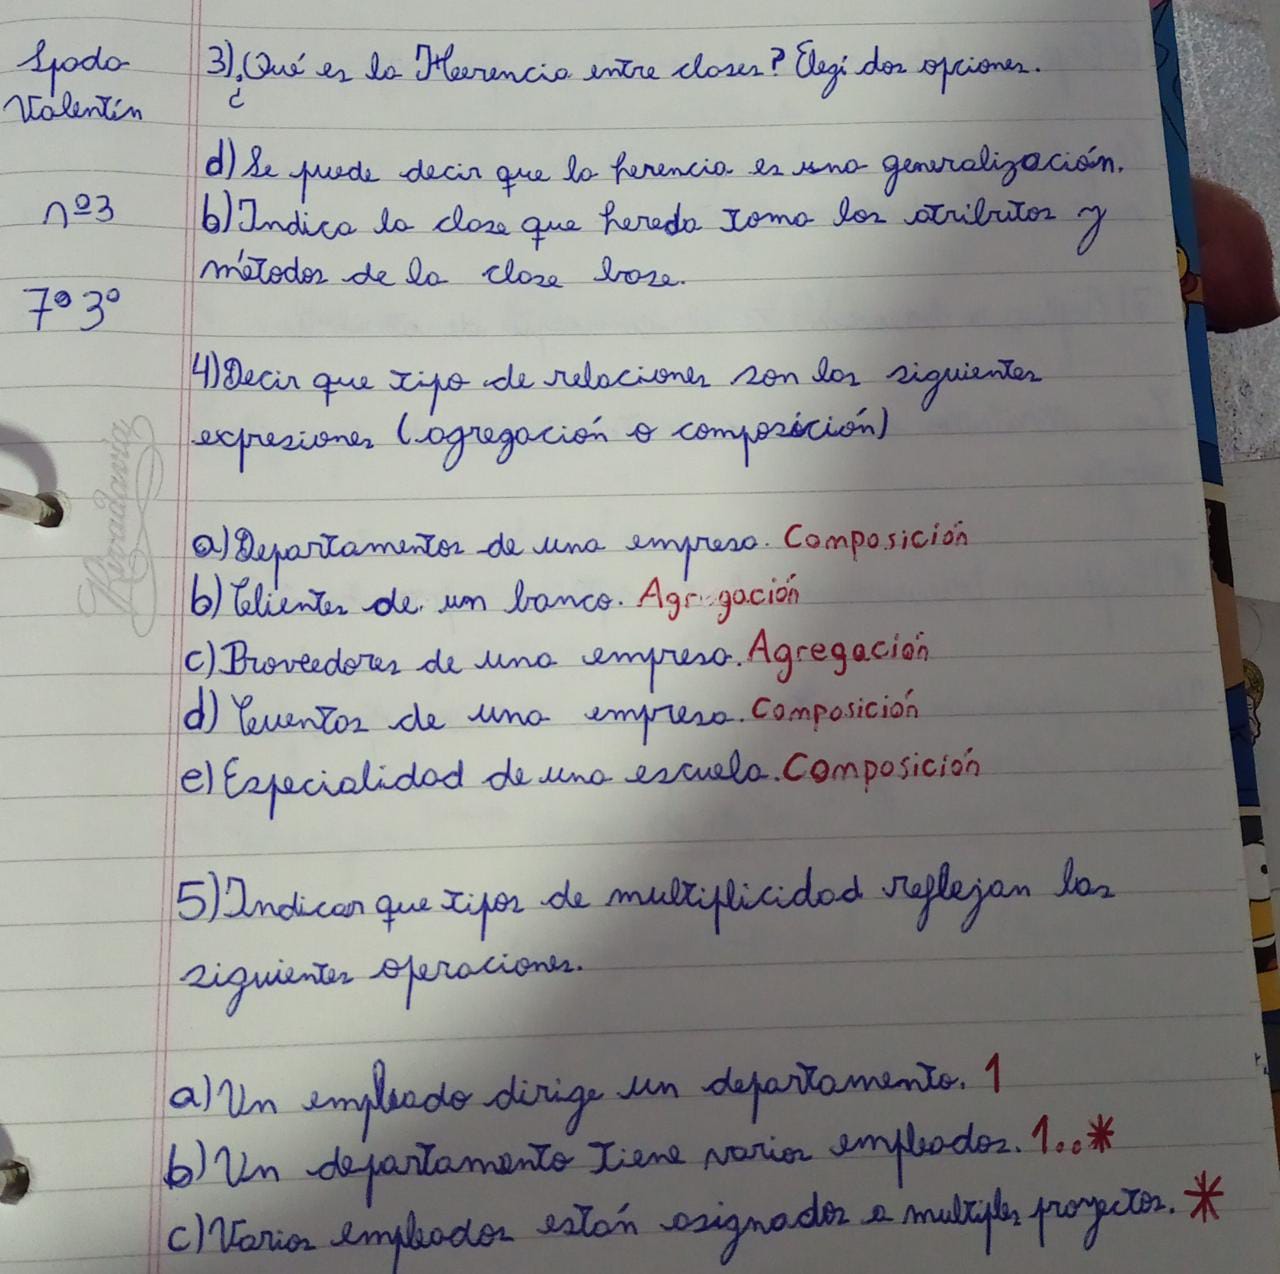 Spada
Valentín
nº3
7º 3º
3)¿Qué es la Heerencia entre clases? Elegí dos opciones.
d) Se puede decir que la herencia es una generalización.
b) Indica la clase que hereda toma los atributos y
métodos de la clase base.
4) Decir que tipo de relaciones son las siguientes
expresiones (agregación o composición)
a) Departamentos de una empresa. Composición
b) Clientes de un banco. Agregación
c) Proveedores de una empresa. Agregación
d) Cuentas de una empresa. Composición
e) Especialidad de una escuela. Composición
5) Indicar que tipos de multiplicidad reflejan las
siguientes operaciones.
a) Un empleado dirige un departamento. 1
b) Un departamento tiene varios empleados. 1..*
c) Varios empleados están asignados a multiples proyectos. *
Rivadavia